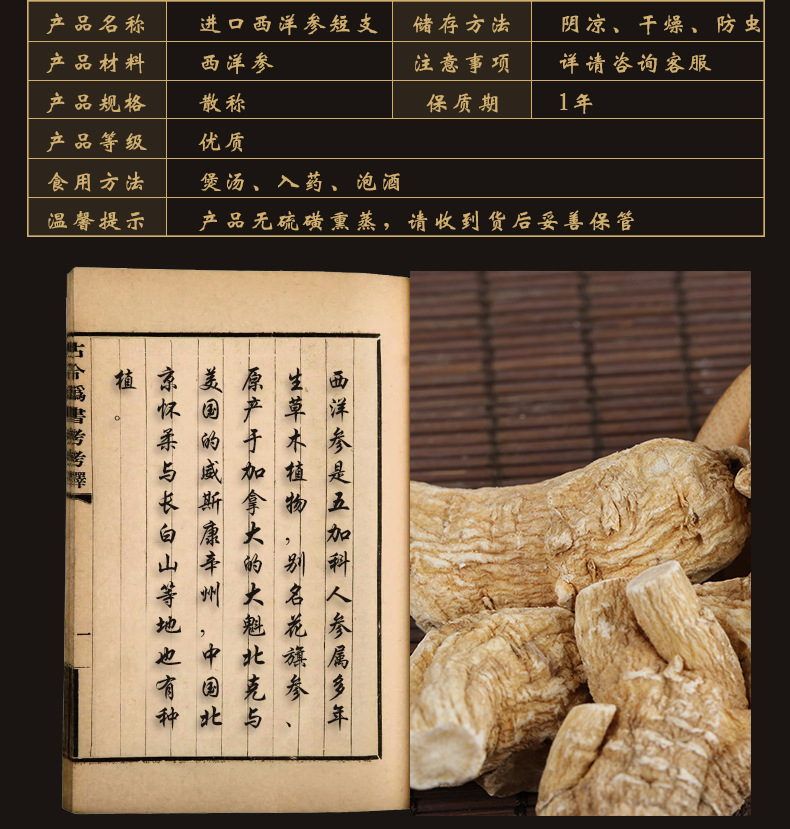 产品名称 进口西洋参短支 储存方法 阴凉、干燥、防虫
产品材料 西洋参 注意事项 详请咨询客服
产品规格 散称 保质期 1年
产品等级 优质
食用方法 煲汤、入药、泡酒
温馨提示 产品无硫磺熏蒸，请收到货后妥善保管
西洋参是五加科人参属多年
生草木植物，别名花旗参、
原产于加拿大的大魁北克与
美国的威斯康辛州，中国北
京怀柔与长白山等地也有种
植。
古今偽書考考釋
一